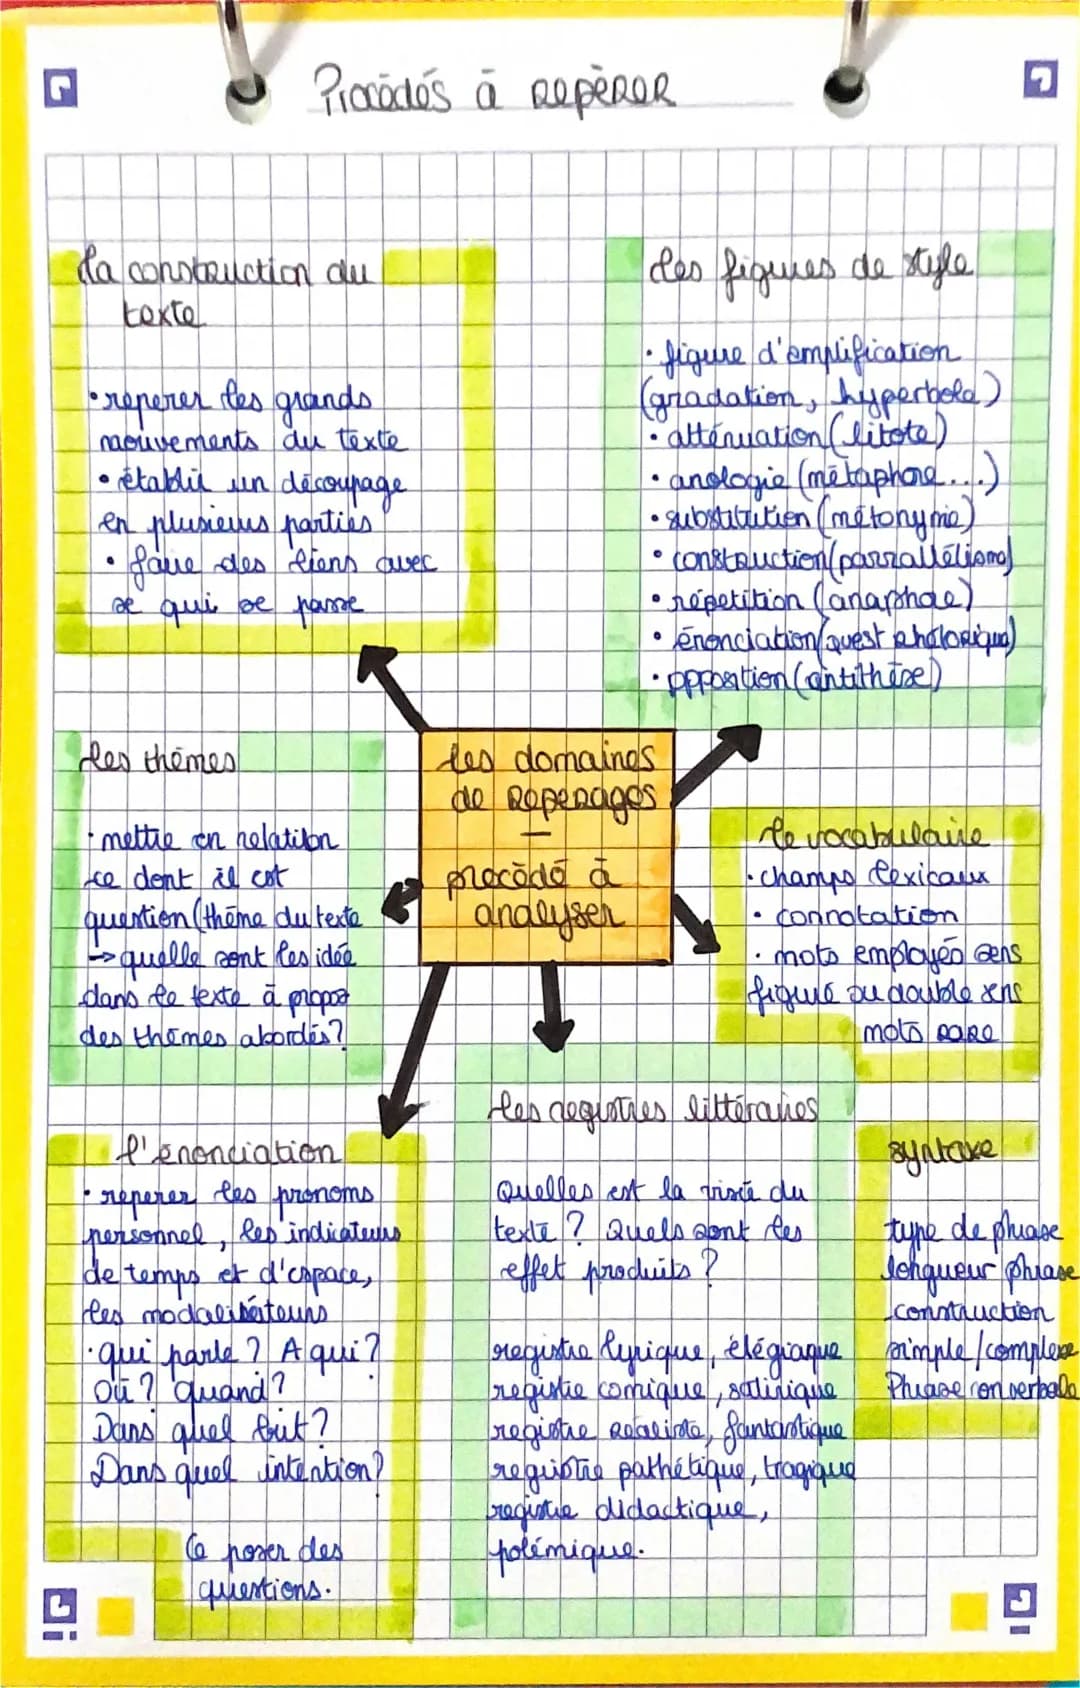 Procédés à repérer
La construction du
texte
• repérer les grands
mouvements du texte
• établir un découpage
en plusieurs parties
• faire des liens avec
se qui se passe
Les figures de style
• figure d'emplification
(gradation, hyperbole)
• atténuation (litote)
• anologie (métaphore...)
• substitution (métonymie)
• construction (parrallélisme)
• répetition (anaphore)
• énonciation (quest rhétorique)
• opposition (antithèse)
Les thèmes
• mettre en relation
ce dont il est
question (thème du texte
→ quelle sont les idée
dans le texte à propos
des thèmes abordés?
les domaines
de reperages
—
procédé à
analyser
Le vocabulaire
• champs lexicaux
• connotation
• mots employés sens
figuré ou double sens
mots rare
l'énonciation
• repérer les pronoms
personnel, les indicateurs
de temps et d'espace,
les modalisateurs
• qui parle ? A qui ?
Où ? Quand ?
Dans quel but ?
Dans quel intention?
Ce poser des
questions.
Les registres littéraires
Quelles est la visée du
texte ? Quels sont les
effet produits ?
registre lyrique, élégiaque
registre comique, satirique
registre réaliste, fantastique
registre pathétique, tragique
registre didactique,
polémique.
syntaxe
type de phrase
longueur phrase
construction
simple/complexe
Phrase non verbale